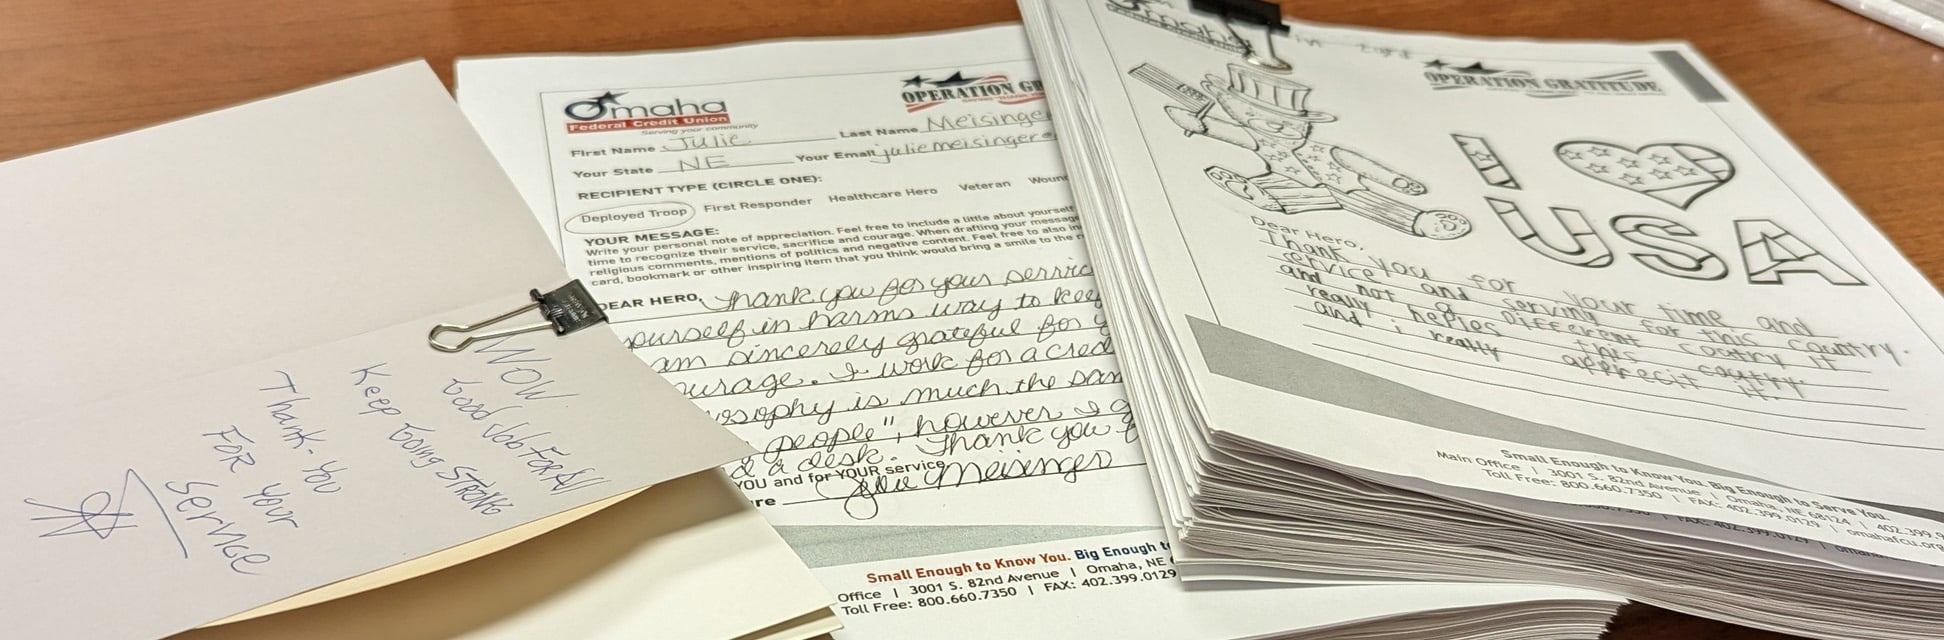 WOW
Good Job For All
Keep Going Strong
Thank-You
For Your
Service
Omaha
Federal Credit Union
Serving your community
OPERATION GR
First Name Julie Last Name Meisinger
Your State NE Your Email juliemeisinger@
RECIPIENT TYPE (CIRCLE ONE):
Deployed Troop First Responder Healthcare Hero Veteran Woun
YOUR MESSAGE:
Write your personal note of appreciation. Feel free to include a little about yourself
time to recognize their service, sacrifice and courage. When drafting your message
religious comments, mentions of politics and negative content. Feel free to also in
card, bookmark or other inspiring item that you think would bring a smile to the r
DEAR HERO, Thank you for your servic
yourself in harms way to keep
am sincerely grateful for y
urage. I work for a cred
osophy is much the sam
people", however I g
d a desk. Thank you f
YOU and for YOUR service
re Julie Meisinger
Small Enough to Know You. Big Enough t
Office | 3001 S. 82nd Avenue | Omaha, NE
Toll Free: 800.660.7350 | FAX: 402.399.0129
Omaha
OPERATION GRATITUDE
I
USA
Dear Hero,
Thank you for your time and
service and serving for this country.
and not a different coutry it
really helpes this coutry
and i really apprecit it.
Small Enough to Know You. Big Enough to Serve You.
Main Office | 3001 S. 82nd Avenue | Omaha, NE 68124 | 402.399.9
Toll Free: 800.660.7350 | FAX: 402.399.0129 | omahafcu.org
FAX: 402.399.0129 | omaha